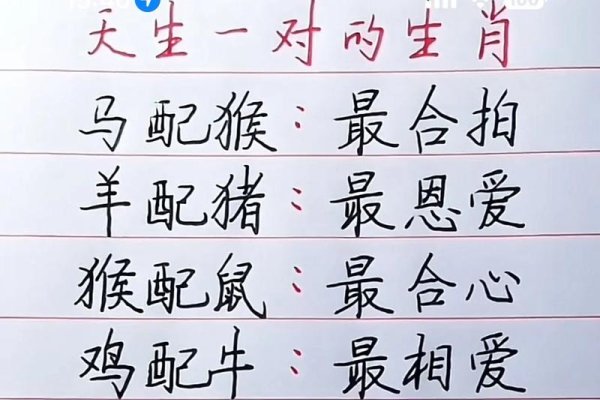 天生一对的生肖
马配猴：最合拍
羊配猪：最恩爱
猴配鼠：最合心
鸡配牛：最相爱